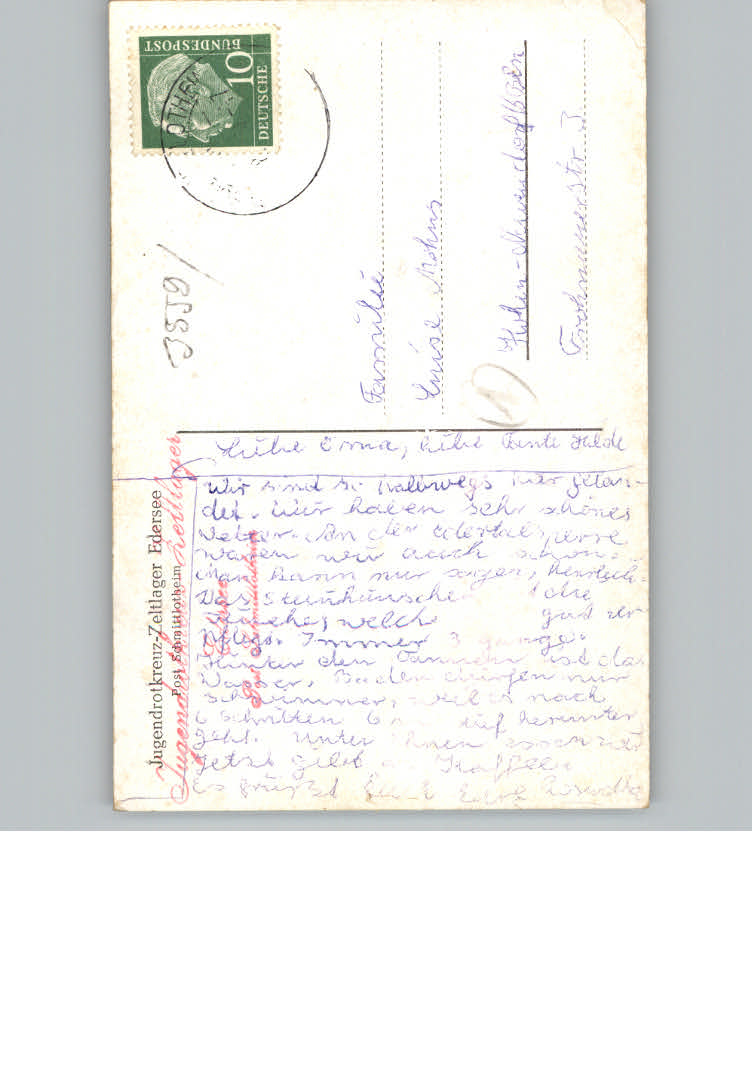 DEUTSCHE
BUNDESPOST
10
3559
Familie
Luise Mohns
Hohen-
str. 3
Jugendrotkreuz-Zeltlager Edersee
Post Schmittlotheim
Jugendrotkreuz Zeltlager
Edersee
Post Schmittlotheim
Liebe Oma, liebe Tante Hilde
wir sind so halbwegs hier gelan-
det. Wir haben sehr schönes
Wetter. An der Edertalsperre
waren wir auch schon.
Man kann nur sagen, herrlich.
Das Steinhäusche
Küche, welch gut
Immer 3 Gänge.
Hinter den Tannen ist das
Wasser. Baden dürfen nur
Schwimmer, weil es nach
6 Schritten 6 m herunter
geht. Unter ihnen
Jetzt gibt Kaffee
Es grüßt Euch Eure